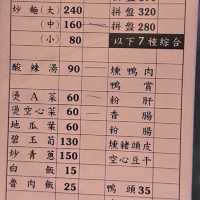 炒麵(大) 240
(中) 160
(小) 80
酸辣湯 90
燙A菜 60
燙空心菜 60
地瓜葉 60
碧玉筍 130
炒青蔥 150
白飯 15
魯肉飯 25
拼盤320
拼盤280
以下7種綜合
燻鴨肉
鴨賞
粉肝
香腸
粉腸
燻豬頭皮
空心豆干
鴨頭35